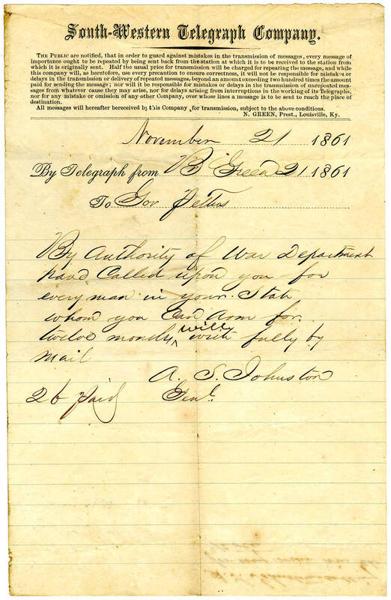 South-Western Telegraph Company.
THE PUBLIC are notified, that in order to guard against mistakes in the transmission of messages, every message of
importance ought to be repeated by being sent back from the station at which it is to be received to the station from
which it is originally sent. Half the usual price for transmission will be charged for repeating the message, and while
this company will, as heretofore, use every precaution to ensure correctness, it will not be responsible for mistakes or
delays in the transmission or delivery of repeated messages, beyond an amount exceeding two hundred times the amount
paid for sending the message; nor will it be responsible for mistakes or delays in the transmission of unrepeated messages
from whatever cause they may arise, nor for delays arising from interruptions in the working of its Telegraphs,
nor for any mistake or omission of any other Company, over whose lines a message is to be sent to reach the place of
destination.
All messages will hereafter be received by this Company for transmission, subject to the above conditions.
N. GREEN, Prest., Louisville, Ky.
November 21 1861
By Telegraph from B Green 21 1861
To Gov Pettus
By Authority of War Department
have Called upon you for
every man in your State
whom you Can Arm for
twelve months will write fully by
Mail
A. S. Johnston
26 paid Genl.